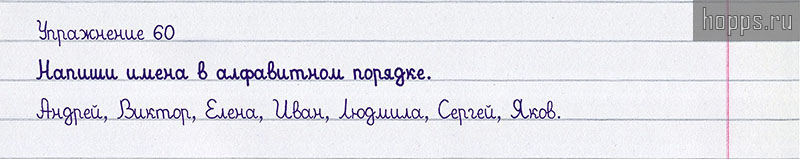 hopps.ru
Упражнение 60
Напиши имена в алфавитном порядке.
Андрей, Виктор, Елена, Иван, Людмила, Сергей, Яков.